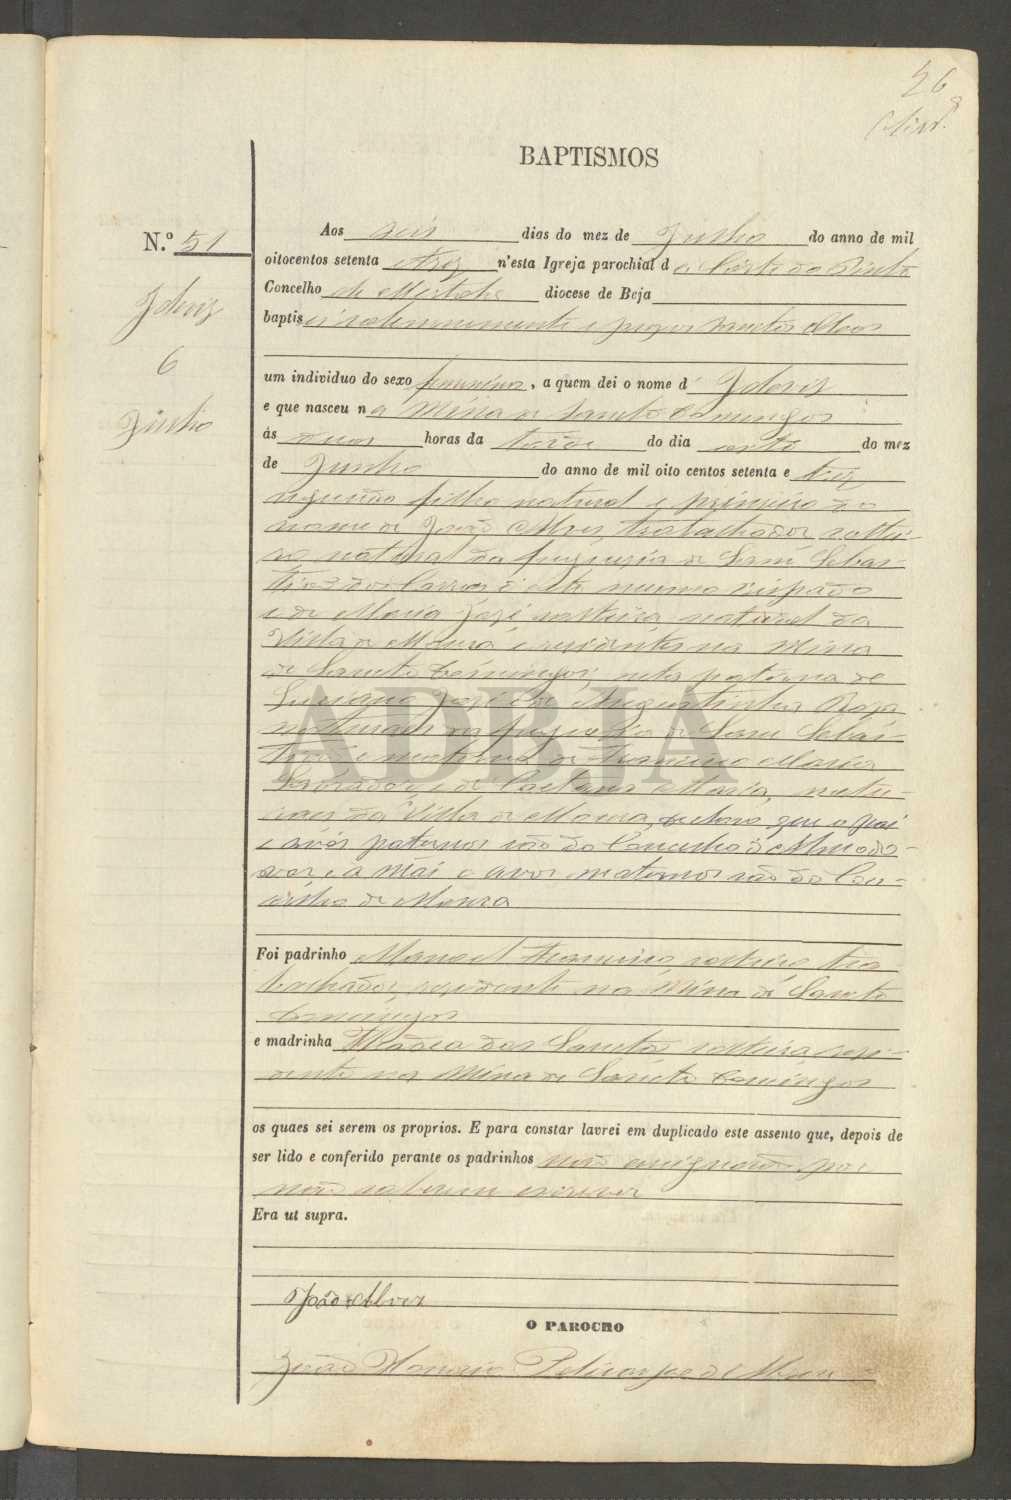 26
BAPTISMOS
N.º 51
Aos seis dias do mez de Julho do anno de mil
oitocentos setenta e trez n'esta Igreja parochial da Côrte do Pinto
Concelho de Mertola diocese de Beja
baptisei solemnemente e puz os sanctos oleos
um individuo do sexo feminino, a quem dei o nome d
e que nasceu na Mina de Sancto Domingos
ás duas horas da tarde do dia oito do mez
de Junho do anno de mil oito centos setenta e trez
6
Julho
segundo filho natural e primeiro do
nome de João Alves trabalhador soltei-
ro natural da freguesia de Sam Sebas-
tião dos Carros d'este mesmo bispado
e de Maria José solteira, natural da
Villa de Moura e residentes na Mina
de Sancto Domingos, neta paterna de
José e de Augustinha Rosa
naturaes da freguesia de Sam Sebas-
tião e materna de Francisco Maria
e de Caetana Maria, natu-
raes da Villa de Moura, declaro que o pai
e avós paternos são do Concelho d'Almodo-
var, e a mãi e avos maternos são do Con-
celho de Moura
Foi padrinho Manoel Francisco solteiro tra-
balhador, residente na Mina de Sancto
Domingos
e madrinha Maria dos Sanctos solteira resi-
dente na Mina de Sancto Domingos
os quaes sei serem os proprios. E para constar lavrei em duplicado este assento que, depois de
ser lido e conferido perante os padrinhos não assignarão por
não saberem escrever
Era ut supra.
João Alves
O PAROCHO
João Policarpo d
ADBJA